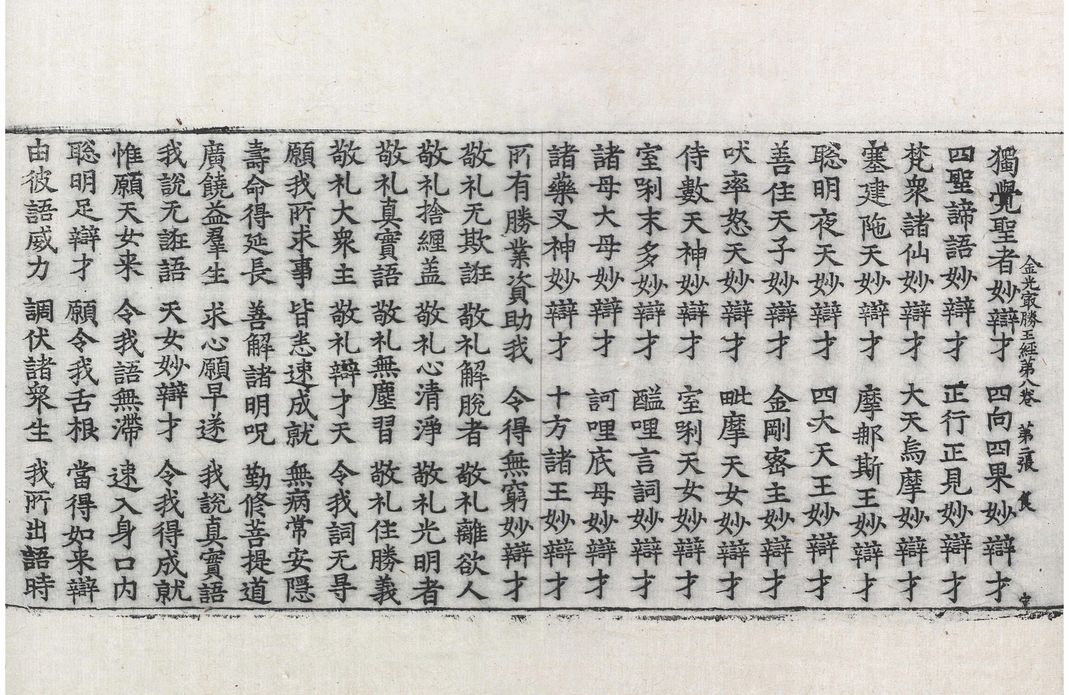 金光㝡勝王經第八卷 第二張
獨覺聖者妙辯才 四向四果妙辯才
四聖諦語妙辯才 正行正見妙辯才
梵衆諸仙妙辯才 大天烏摩妙辯才
塞建陁天妙辯才 摩那斯王妙辯才
聡明夜天妙辯才 四大天王妙辯才
善住天子妙辯才 金剛密主妙辯才
吠率怒天妙辯才 毗摩天女妙辯才
侍數天神妙辯才 室唎天女妙辯才
室唎末多妙辯才 醯哩言詞妙辯才
諸母大母妙辯才 訶哩底母妙辯才
諸藥叉神妙辯才 十方諸王妙辯才
所有勝業資助我 令得無窮妙辯才
敬礼无欺誑 敬礼解脫者 敬礼離欲人
敬礼捨纏盖 敬礼心清淨 敬礼光明者
敬礼真實語 敬礼無塵習 敬礼住勝義
敬礼大衆主 敬礼辯才天 令我詞无㝵
願我所求事 皆悉速成就 無病常安隱
壽命得延長 善解諸明呪 勤修菩提道
廣饒益羣生 求心願早遂 我說真實語
我說无誑語 天女妙辯才 令我得成就
惟願天女来 令我語無滯 速入身口内
聡明足辯才 願令我舌根 當得如来辯
由彼語威力 調伏諸衆生 我所出語時